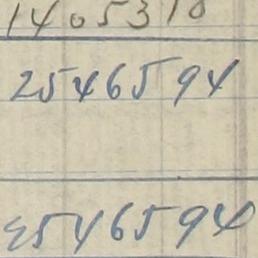 1405310
2546594
2546594